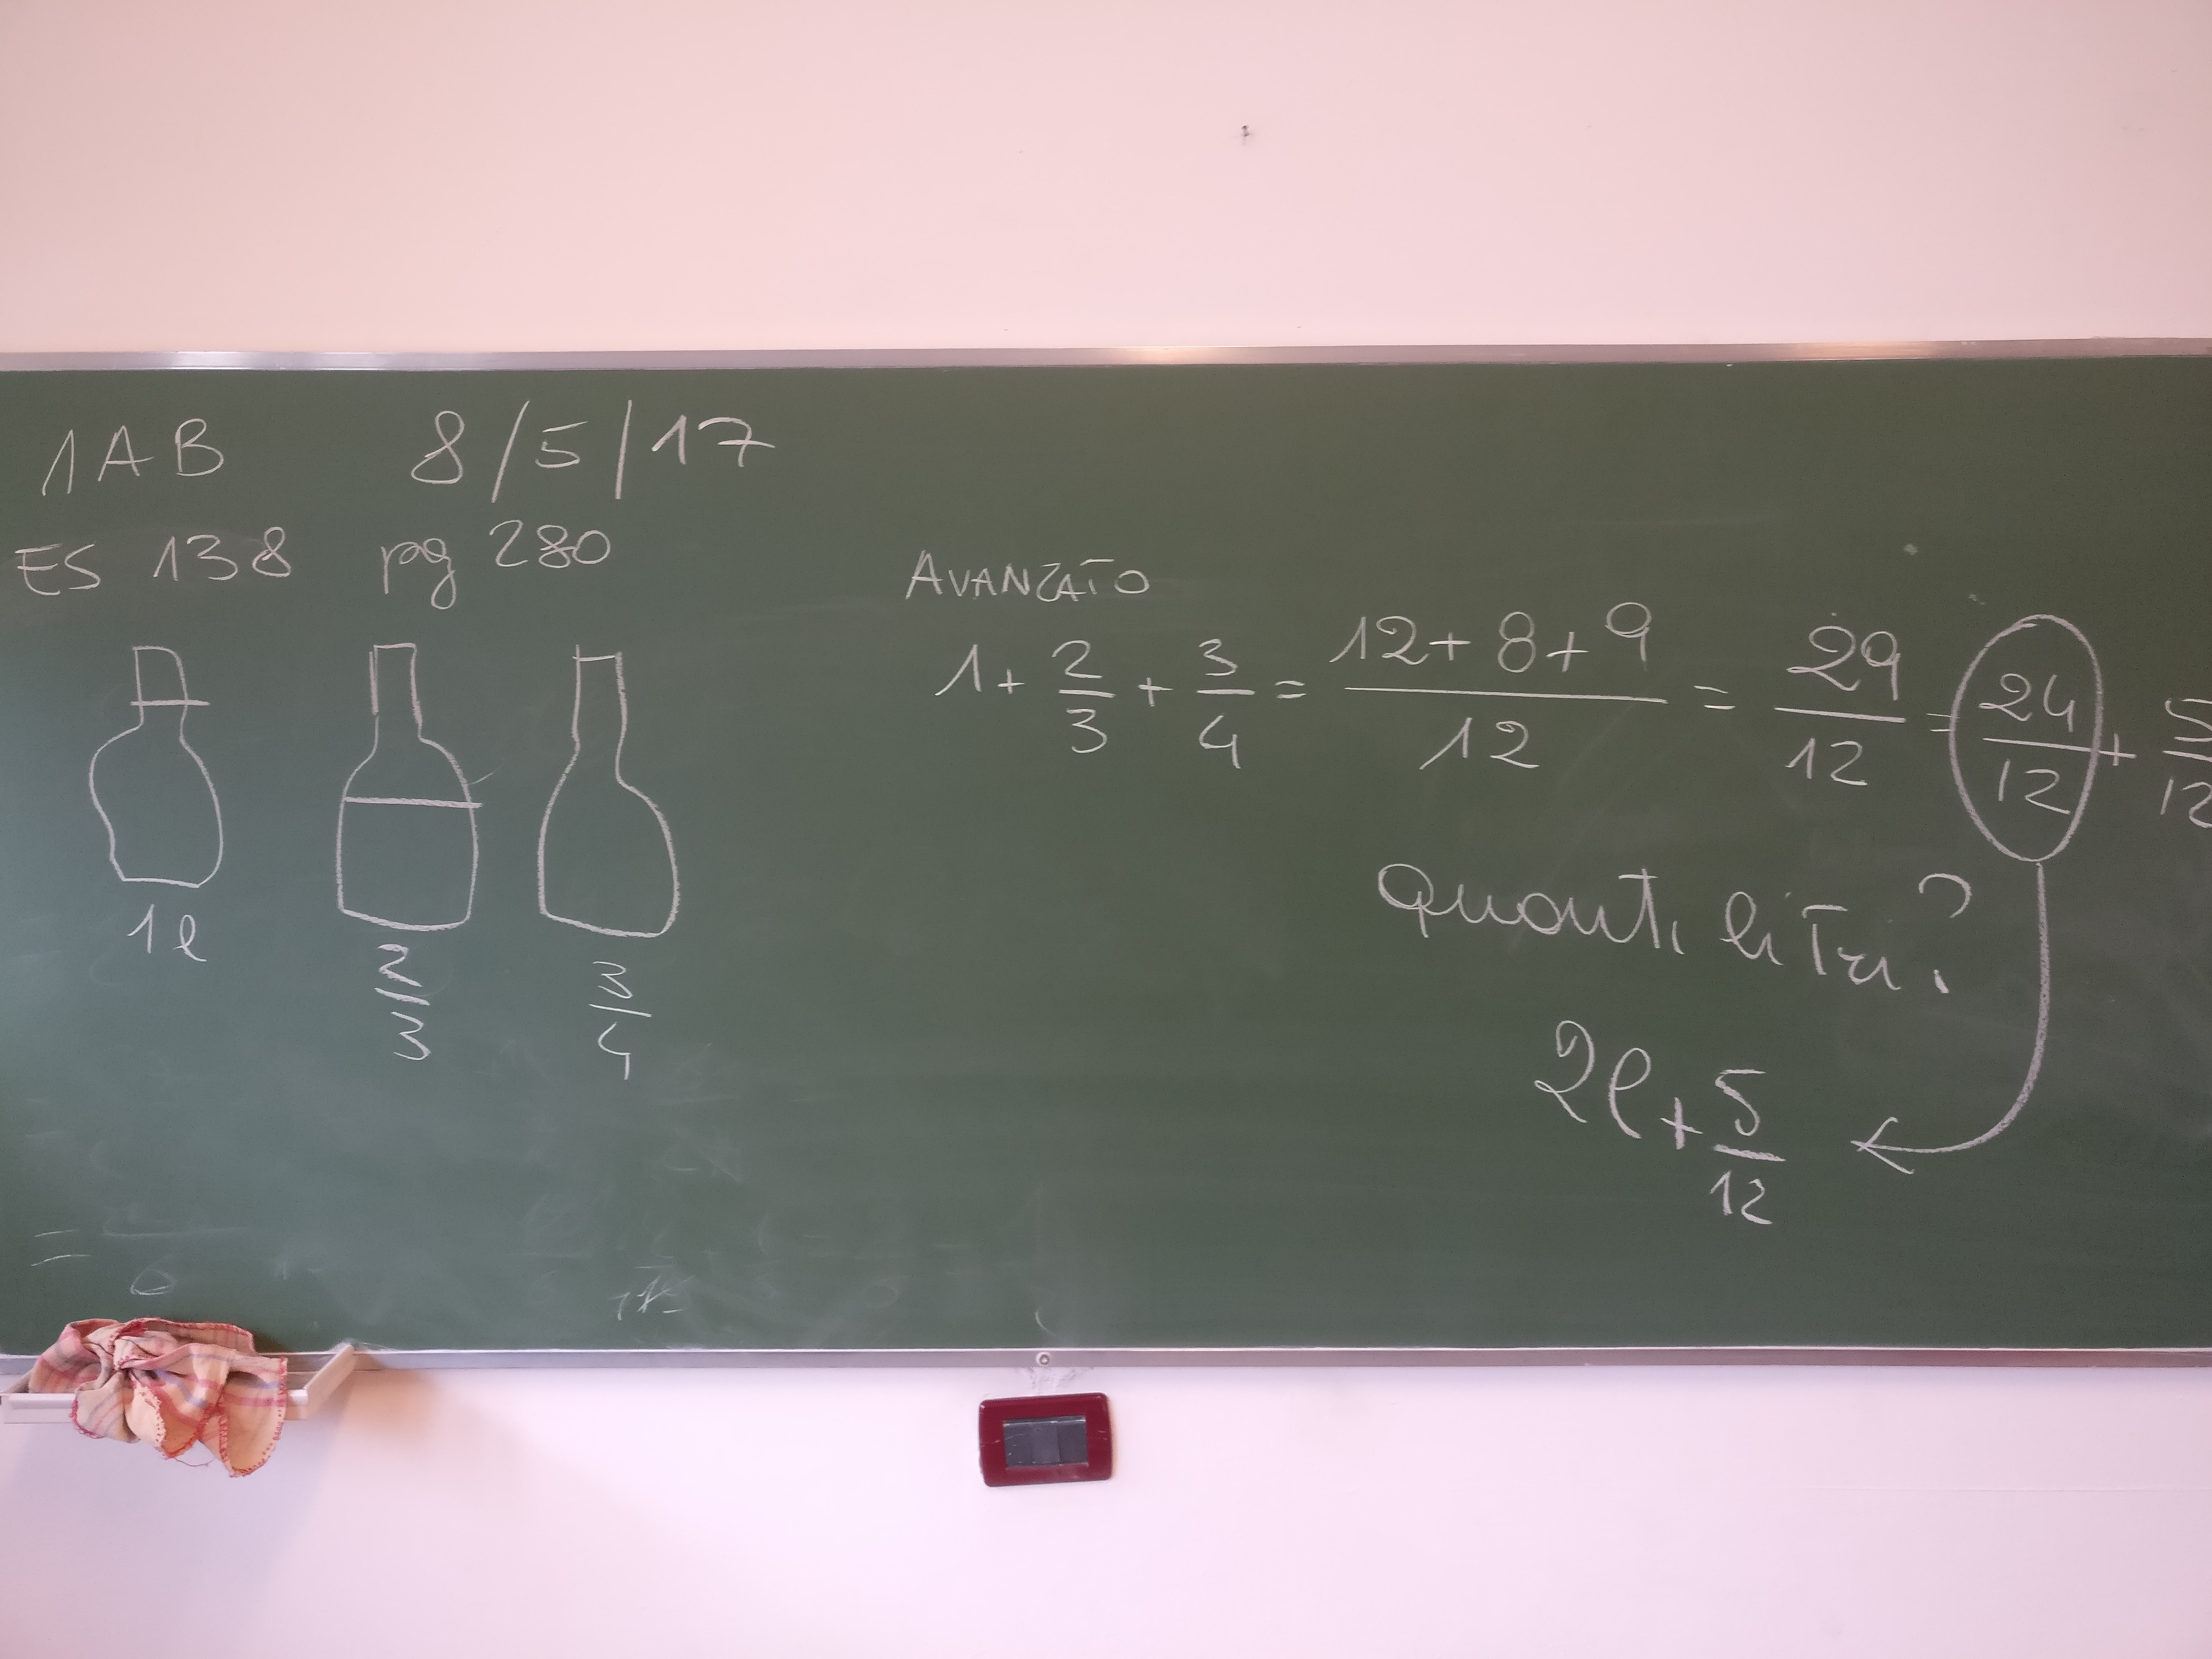 1AB 8/5/17
ES 138 pg 280
AVANZATO
1 + 2/3 + 3/4 = (12 + 8 + 9)/12 = 29/12 = 24/12 + 5/12
1l 2/3 3/4
Quanti litri?
2l + 5/12